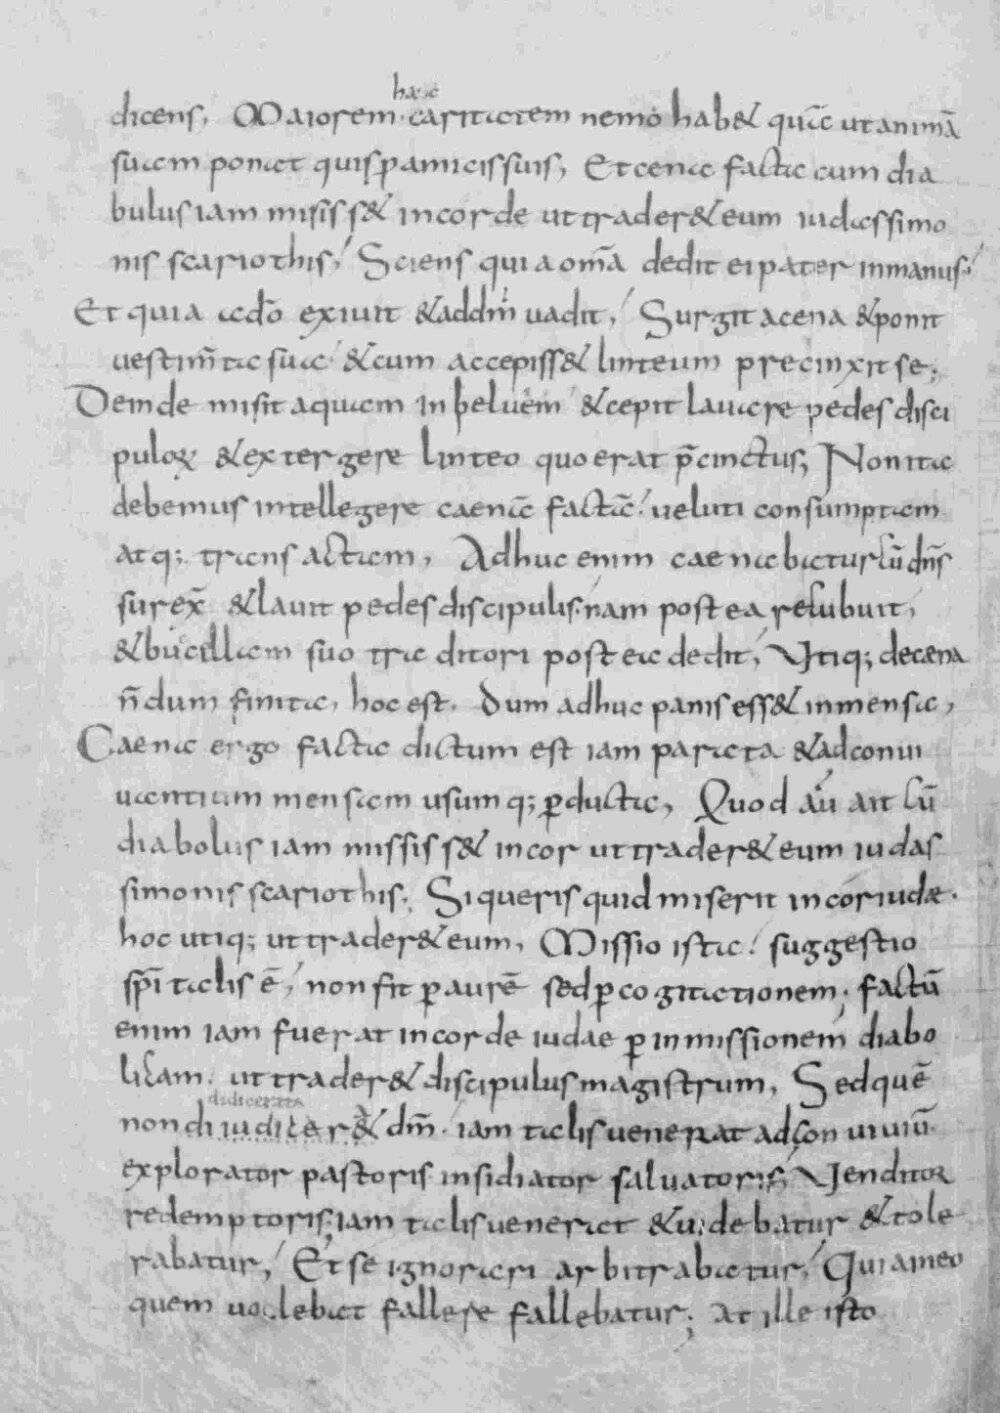 hac
dicens, Maiorem caritatem nemo hab& quā ut animā
suam ponat quis p amicis suis, Et cena facta cum dia
bulus iam misiss& in corde ut trader& eum iudas simo
nis scariothis, Sciens quia om̄a dedit ei pater in manus,
Et quia a do exiuit & ad dm̄ uadit, Surgit a cena & ponit
vestim̄ta sua & cum accepiss& linteum precinxit se;
Deinde misit aquam in peluem & cepit lauare pedes disci
puloꝝ & extergere linteo quo erat p̄cinctus; Non ita
debemus intellegere caenā factā ueluti consumptam
atq; transactam, Adhuc enim caenabatur cū dn̄s
surex̄ & lauit pedes discipulis. nam postea recubuit,
& bucellam suo traditori postea dedit, Utiq; de cæna
n̄dum finita, hoc est. dum adhuc panis ess& in mensa,
Caena ergo facta dictum est iam parata & ad conui
uantium mensam usumq; ꝑducta, Quod aū ait cū
diabolus iam mississ& in cor ut trader& eum iudas
simonis scariothis, Si queris quid miserit in cor iudæ.
hoc utiq; ut trader& eum, Missio ista suggestio
sp̄italis ē, non fit ꝑ aurē sed ꝑ cogitationem, factū
enim iam fuerat in corde iudae ꝑ inmissionem diabo
licam. ut trader& discipulus magistrum, Sed quē
didicerat
non diiudicer& dm̄. iam talis uenerat ad conuiuiū
explorator pastoris insidiator saluatoris, Venditor
redemptoris, iam talis uenerat & uidebatur & tole
rabatur, Et se ignorari arbitrabatur, Quia in eo
quem uolebat fallere fallebatur; at ille isto